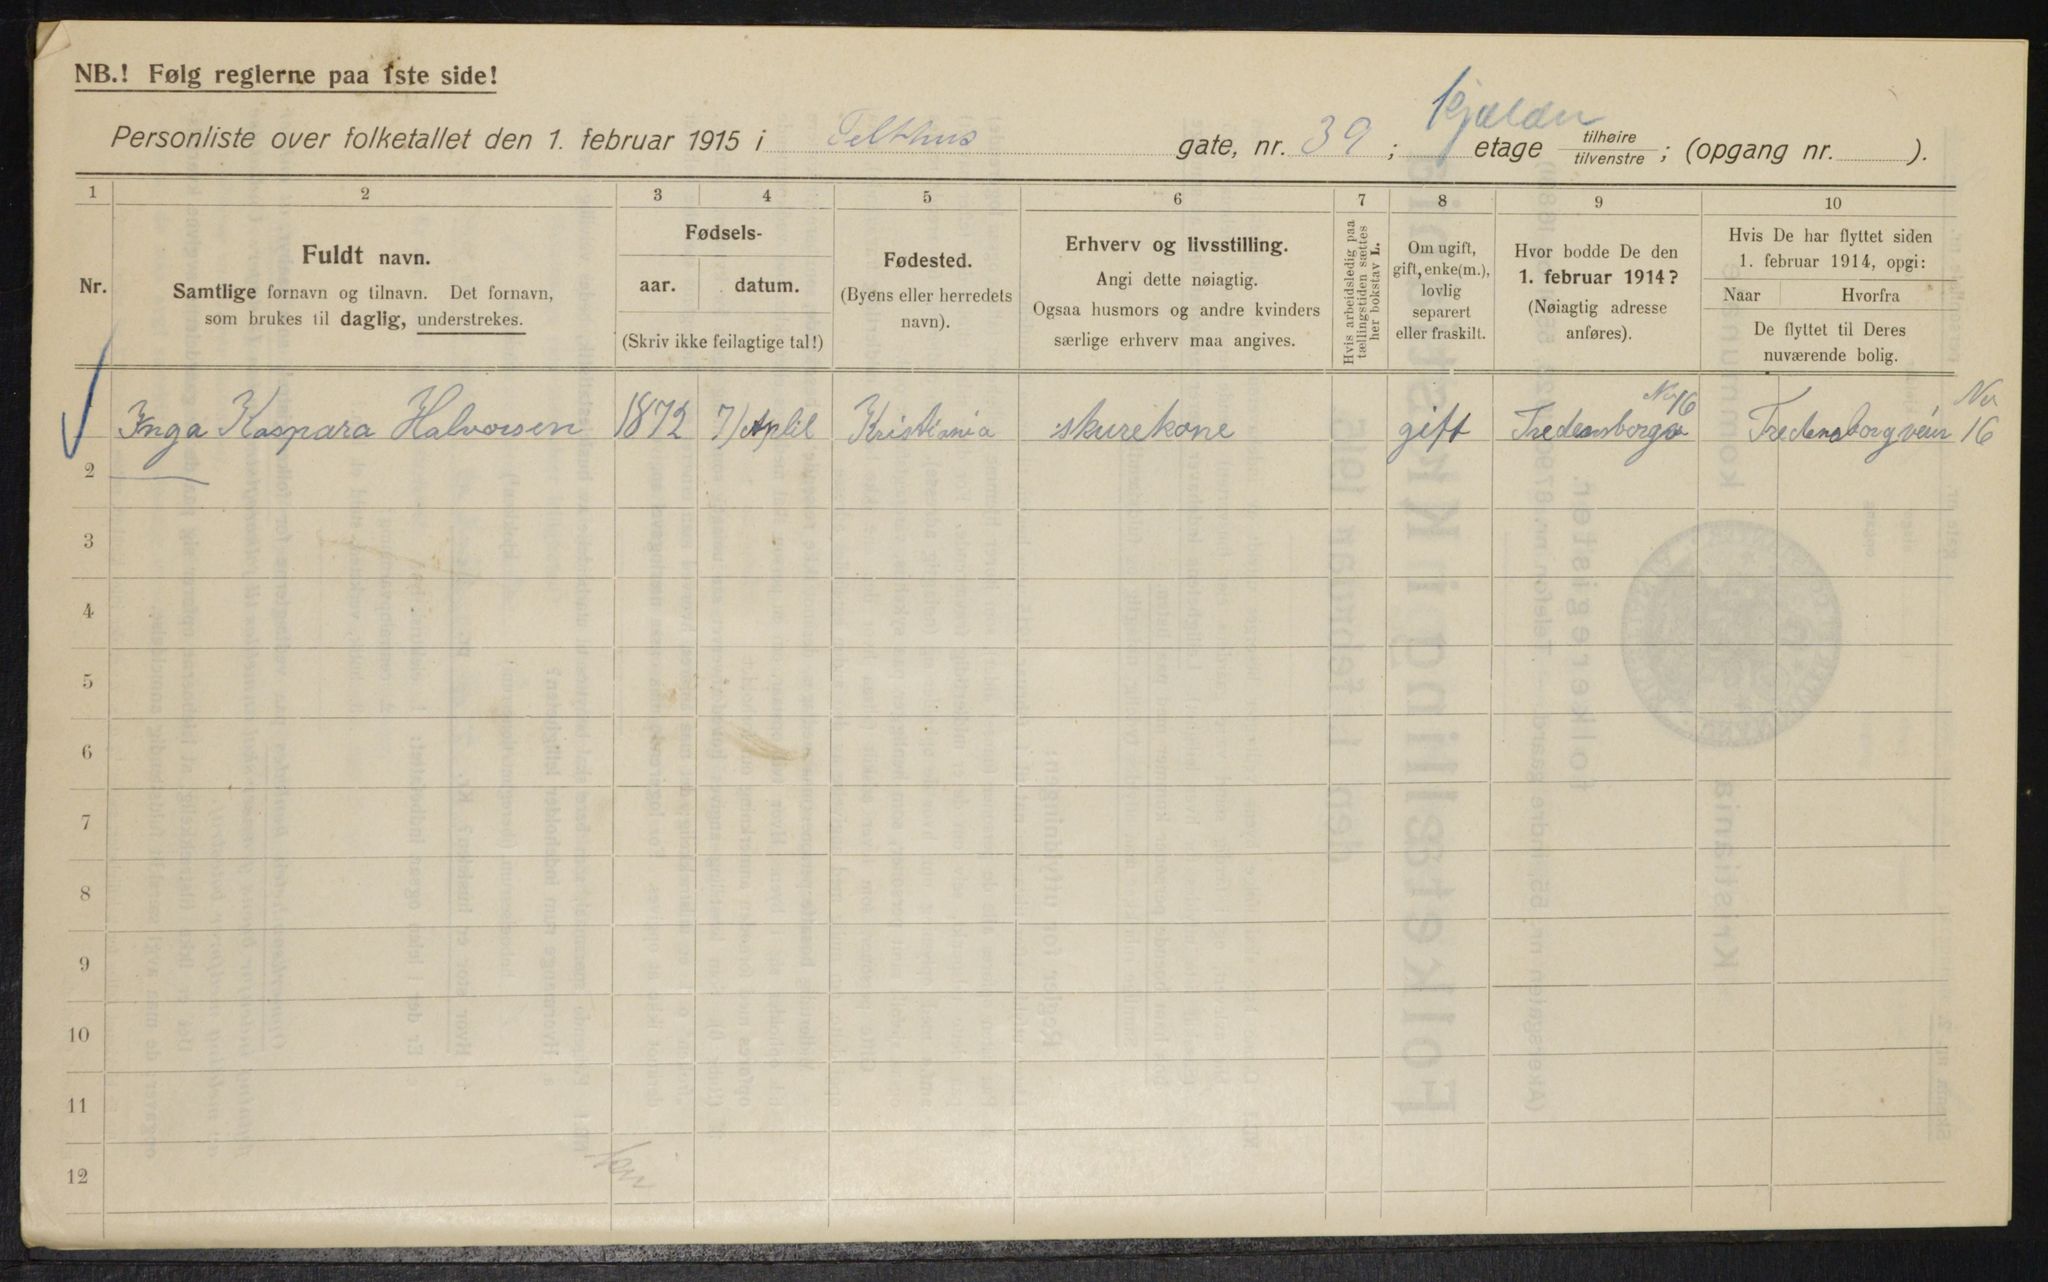 NB.! Følg reglerne paa 1ste side!
Kjælder
Personliste over folketallet den 1. februar 1915 i Telthus gate, nr. 39; etage tilhøire tilvenstre; (opgang nr. ).
1 2 3 4 5 6 7 8 9 10
Nr.
Fuldt navn.
Samtlige fornavn og tilnavn. Det fornavn,
som brukes til daglig, understrekes.
Fødsels-
aar. datum.
(Skriv ikke feilagtige tal!)
Fødested.
(Byens eller herredets
navn).
Erhverv og livsstilling.
Angi dette nøiagtig.
Ogsaa husmors og andre kvinders
særlige erhverv maa angives.
Hvis arbeidsledig paa
tællingstiden sættes
her bokstav L.
Om ugift,
gift, enke(m.),
lovlig
separert
eller fraskilt.
Hvor bodde De den
1. februar 1914?
(Nøiagtig adresse
anføres).
Hvis De har flyttet siden
1. februar 1914, opgi:
Naar Hvorfra
De flyttet til Deres
nuværende bolig.
No 16 No
Inga Kaspara Halvorsen 1872 7/ Aplil Kristiania skurekone gift Fredensborgv Fredensborgvein 16
2
3
4
5
6
7
8
9
10
11
12